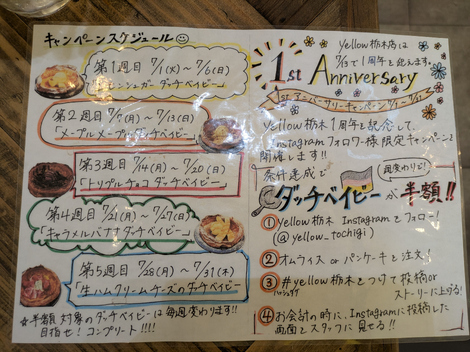 キャンペーンスケジュール
第1週目 7/1(火)～7/6(日)
「レモンシュガーダッチベイビー」
第2週目 7/7(月)～7/13(日)
「メープルメープルダッチベイビー」
第3週目 7/14(月)～7/20(日)
「トリプルチョコ ダッチベイビー」
第4週目 7/21(月)～7/27(日)
「キャラメルバナナダッチベイビー」
第5週目 7/28(月)～7/31(木)
「生ハムクリームチーズのダッチベイビー」
☆半額対象のダッチベイビーは毎週変わります!!
目指せ!コンプリート!!!!
yellow栃木店は
で1周年を迎えます。
1st Anniversary
1stアニバーサリーキャンペーン
yellow栃木1周年を記念して、
Instagramフォロワー様限定キャンペーンを
開催します!!
条件達成で
週変わりで!
ダッチベイビーが半額!!
①yellow栃木 Instagramをフォロー!
(@yellow_tochigi)
②オムライス or パンケーキを注文!
③#yellow栃木をつけて投稿or
ハッシュタグ
ストーリーに上げる!
④お会計の時に、Instagramに投稿した
画面をスタッフに見せる!!